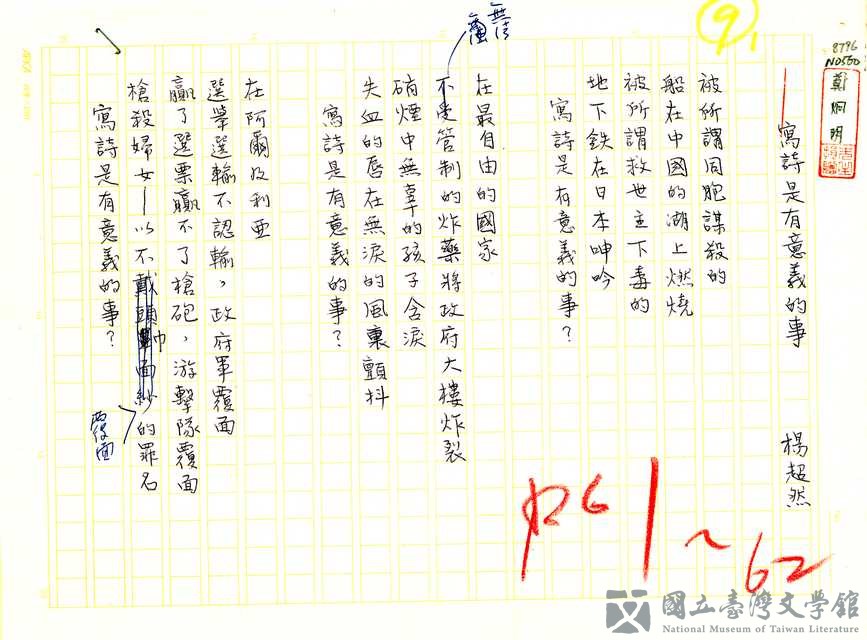 ⑨
8796
N0560
鄭炯明
寫詩是有意義的事
楊超然
被所謂同胞謀殺的
船在中國的湖上燃燒
被所謂救世主下毒的
地下鉄在日本呻吟
寫詩是有意義的事?
在最自由的國家
不受管制的炸藥將政府大樓炸裂
硝煙中無辜的孩子含淚
失血的唇在無淚的風裏顫抖
寫詩是有意義的事?
在阿爾及利亞
選舉選輸不認輸,政府軍覆面
贏了選票贏不了槍砲,游擊隊覆面
槍殺婦女—以不戴頭巾面紗的罪名
覆面
寫詩是有意義的事?
P61~62
國立臺灣文學館
National Museum of Taiwan Literature